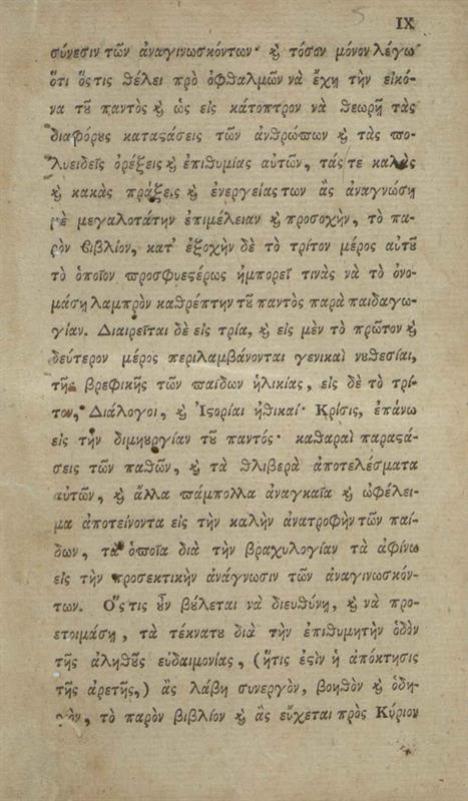 IX
σύνεσιν τῶν ἀναγινωσκόντων· ϗ τόσον μόνον λέγω
ὅτι ὅςτις θέλει πρὸ ὀφθαλμῶν νὰ ἔχῃ τὴν εἰκό-
να τȣ͂ παντὸς ϗ ὡς εἰς κάτοπτρον νὰ θεωρῇ τὰς
διαφόρȣς καταϛάσεις τῶν ἀνθρώπων ϗ τὰς πο-
λυειδεῖς ὀρέξεις ϗ ἐπιθυμίας αὐτῶν, τάς τε καλὰς
ϗ κακὰς πράξεις ϗ ἐνεργείας των ἂς ἀναγνώσῃ
μὲ μεγαλοτάτην ἐπιμέλειαν ϗ προσοχὴν, τὸ πα-
ρὸν βιβλίον, κατ' ἐξοχὴν δὲ τὸ τρίτον μέρος αὐτȣ͂
τὸ ὁποῖον προσφυεϛέρως ἠμπορεῖ τινὰς νὰ τὸ ὀνο-
μάσῃ λαμπρὸν καθρέπτην τȣ͂ παντὸς παρὰ παιδαγω-
γίαν. Διαιρεῖται δὲ εἰς τρία, ϗ εἰς μὲν τὸ πρῶτον ϗ
δεύτερον μέρος περιλαμβάνονται γενικαὶ νȣθεσίαι,
τῆς βρεφικῆς τῶν παίδων ἡλικίας, εἰς δὲ τὸ τρί-
τον, Διάλογοι, ϗ Ἱϛορίαι ἠθικαί· Κρίσις, ἐπάνω
εἰς τὴν διμηȣργίαν τȣ͂ παντός· καθαραὶ παραϛά-
σεις τῶν παθῶν, ϗ τὰ θλιβερὰ ἀποτελέσματα
αὐτῶν, ϗ ἄλλα πάμπολλα ἀναγκαῖα ϗ ὠφέλει-
μα ἀποτείνοντα εἰς τὴν καλὴν ἀνατροφὴν τῶν παί-
δων, τὰ ὁποῖα διὰ τὴν βραχυλογίαν τὰ ἀφίνω
εἰς τὴν προσεκτικὴν ἀνάγνωσιν τῶν ἀναγινωσκόν-
των. Ὅςτις ȣ͂ν βȣ́λεται νὰ διευθύνῃ, ϗ νὰ προ-
ετοιμάσῃ, τὰ τέκνατȣ διὰ τὴν ἐπιθυμητὴν ὁδὸν
τῆς ἀληθȣ͂ς εὐδαιμονίας, (ἥτις ἐϛὶν ἡ ἀπόκτησις
τῆς ἀρετῆς,) ἂς λάβῃ συνεργὸν, βοηθὸν ϗ ὁδη-
γὸν, τὸ παρὸν βιβλίον ϗ ἂς εὔχεται πρὸς Κύριον